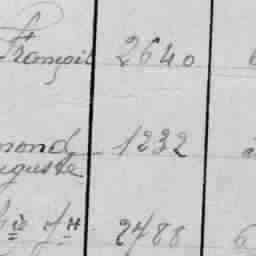 François 2640
mond 1232
uguste
2488